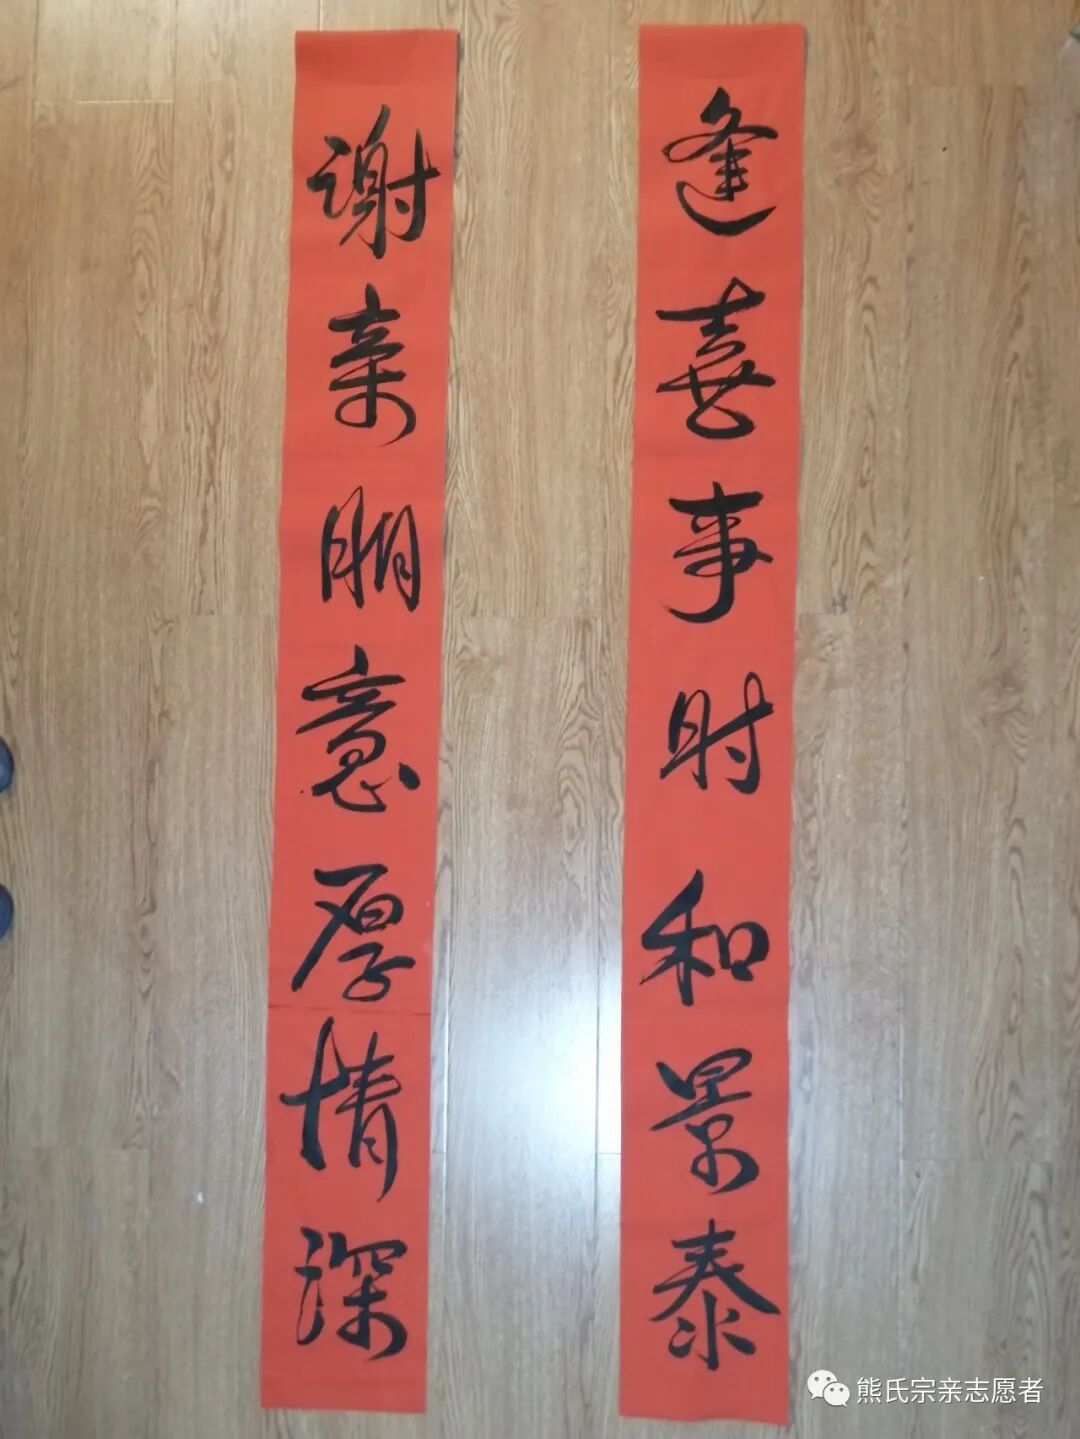 逢喜事时和景泰
谢亲朋意厚情深
熊氏宗亲志愿者